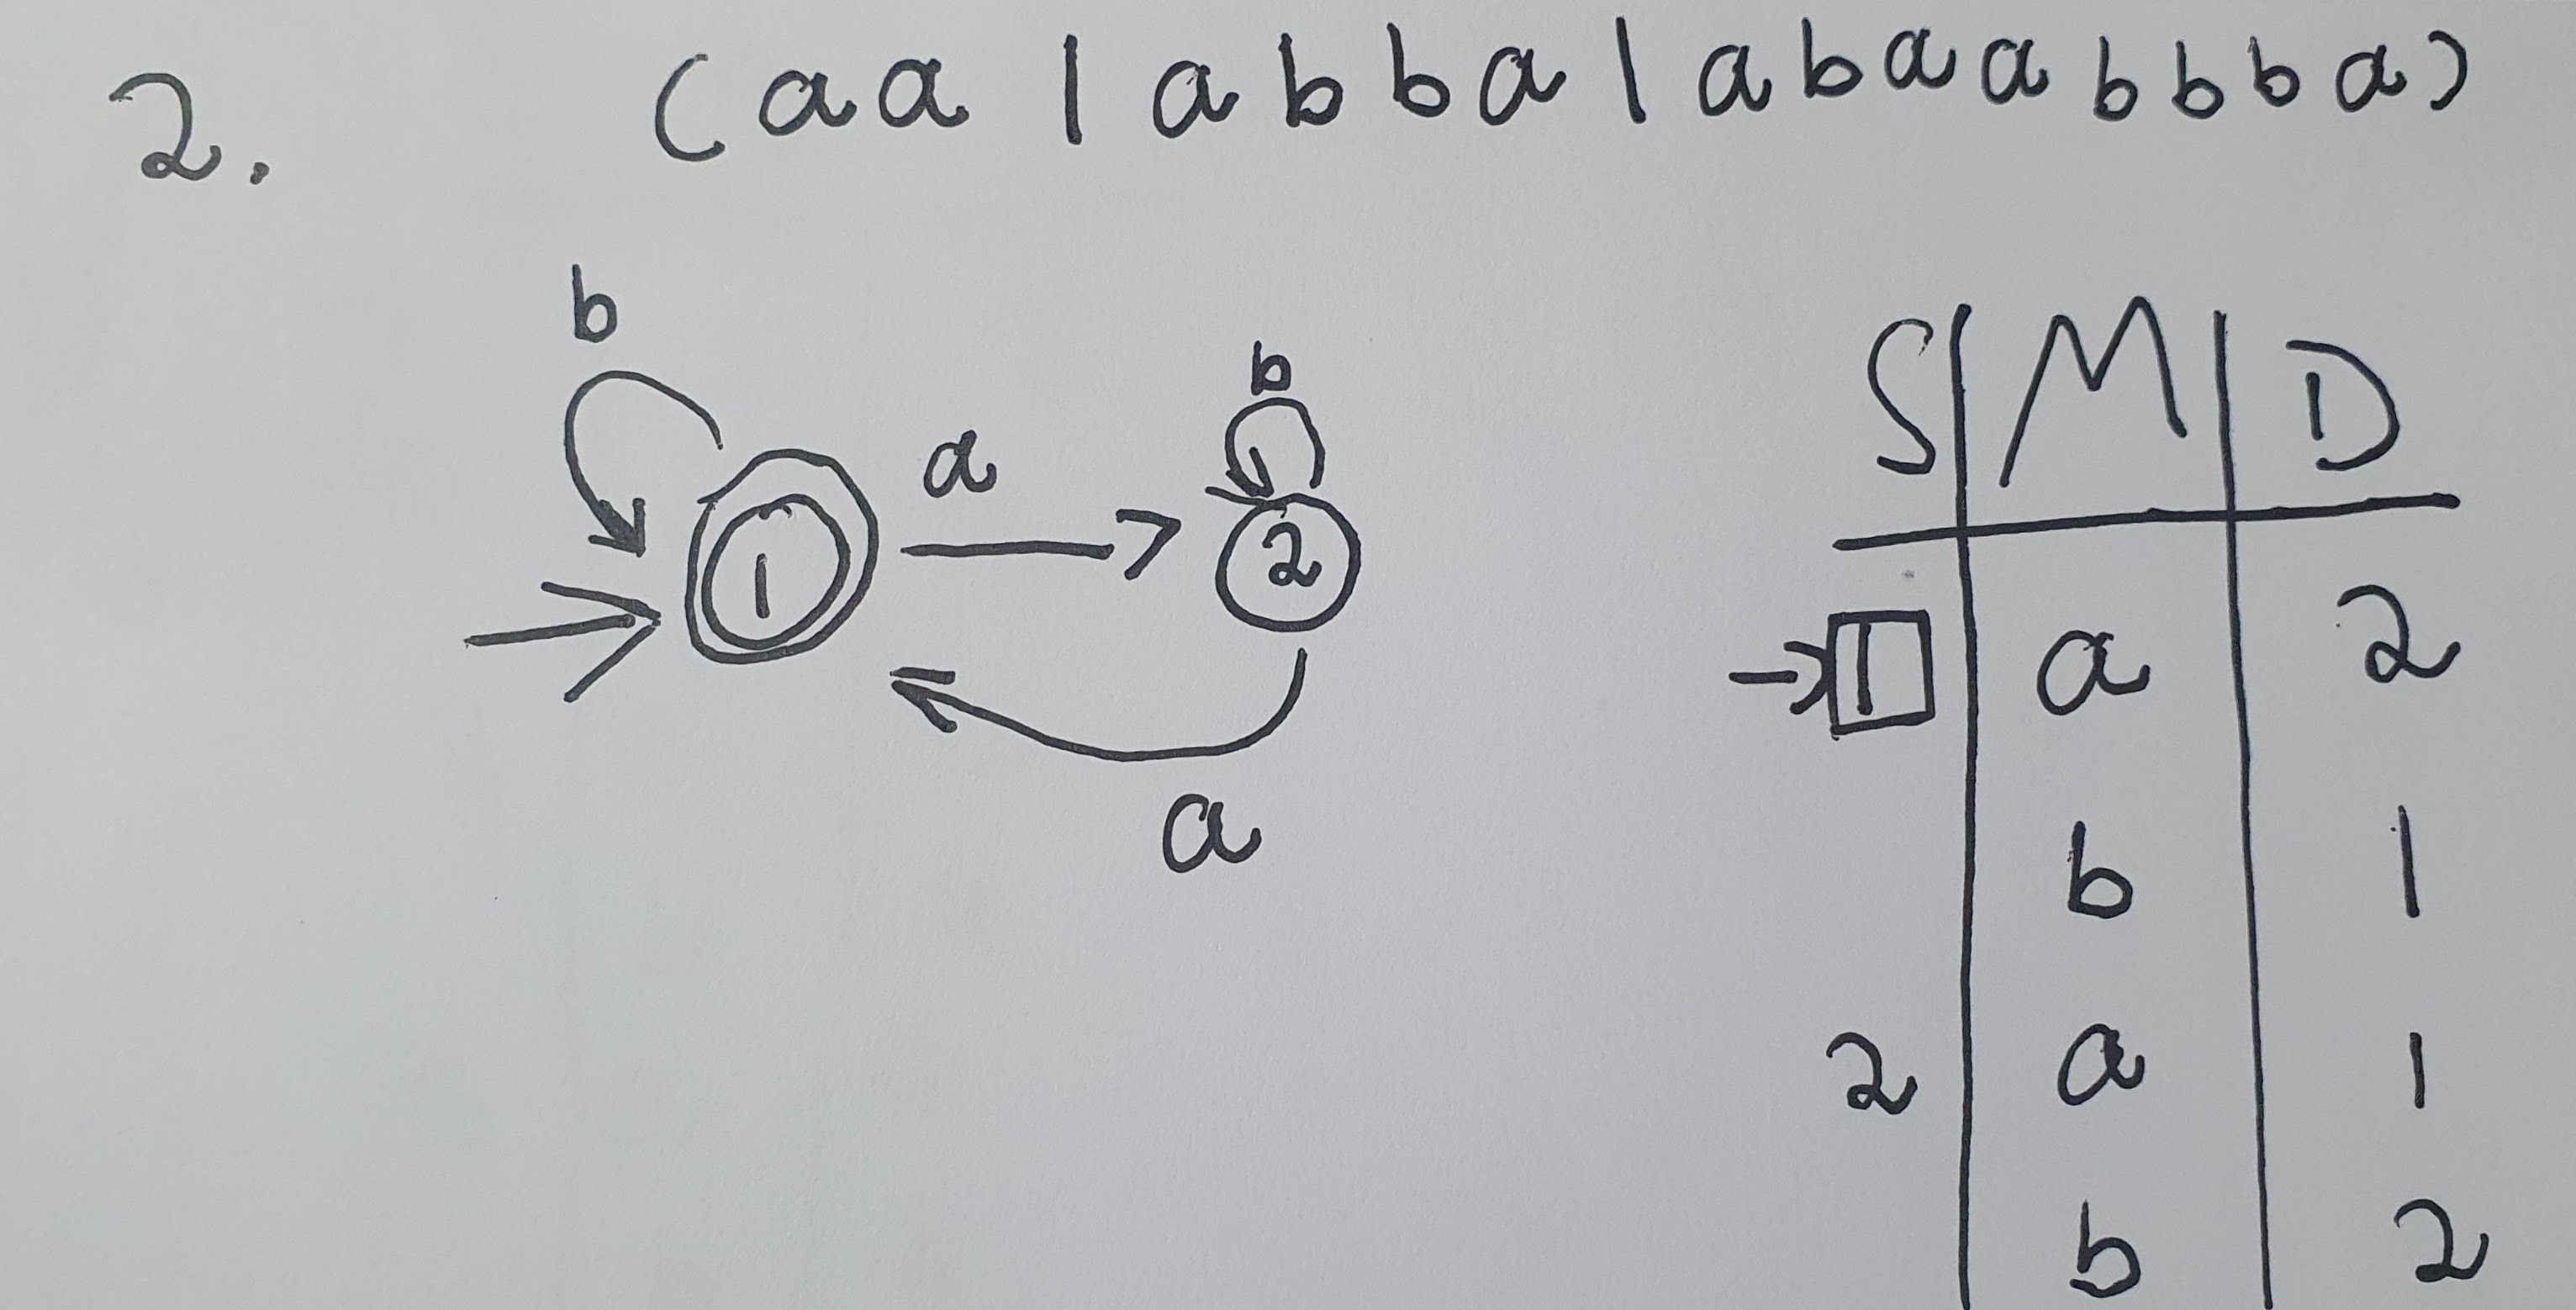 2. (aa | abba | abaabbba)
b
b
a
1
2
a
S | M | D
→ 1 | a | 2
b | 1
2 | a | 1
b | 2